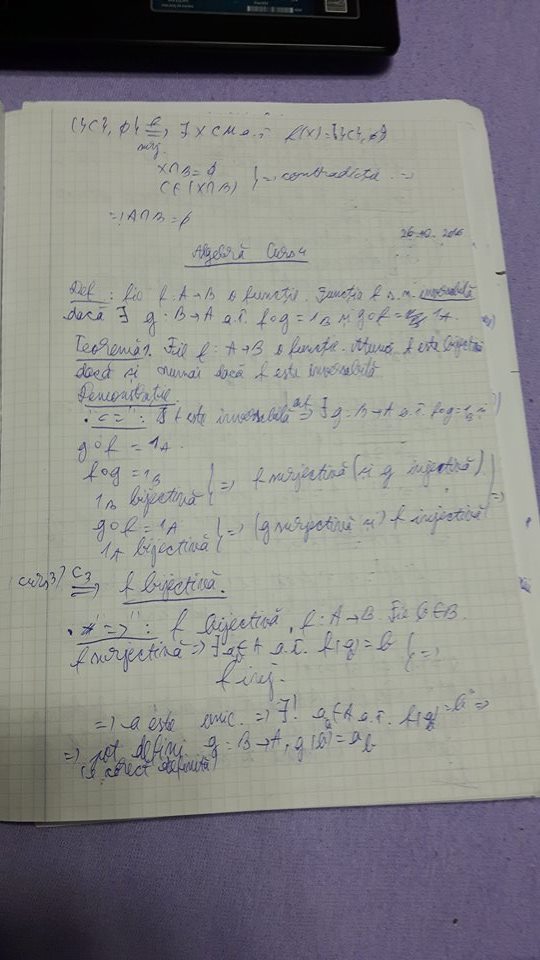 ({C}, ∅) f surj. => ∃ X ⊂ M a.î. f(X) = ({C}, ∅)
X∩B = ∅
C ∈ (X∩B) } => contradicție =>
=> A∩B = ∅
26.10.2016
Algebră Curs 4
Def : Fie f : A→B o funcție. Funcția f s.n. inversabilă
dacă ∃ g : B→A a.î. f∘g = 1_B și g∘f = 1_A.
Teoremă 1. Fie f : A→B o funcție. Atunci f este bijectivă
dacă și numai dacă f este inversabilă
Demonstrație
• "<=" : f este inversabilă => ∃ g : B→A a.î. f∘g = 1_B și
g∘f = 1_A.
f∘g = 1_B
1_B bijectivă } => f surjectivă (și g injectivă)
g∘f = 1_A
1_A bijectivă } => (g surjectivă și) f injectivă } =>
(curs 3) C3 => f bijectivă.
• "=>" : f bijectivă, f : A→B. Fie b∈B.
f surjectivă => ∃ a_b∈A a.î. f(a_b) = b
f inj. } =>
=> a este unic. => ∃! a_b∈A a.î. f(a_b) = b =>
=> pot defini g : B→A, g(b) = a_b
(e corect definită)